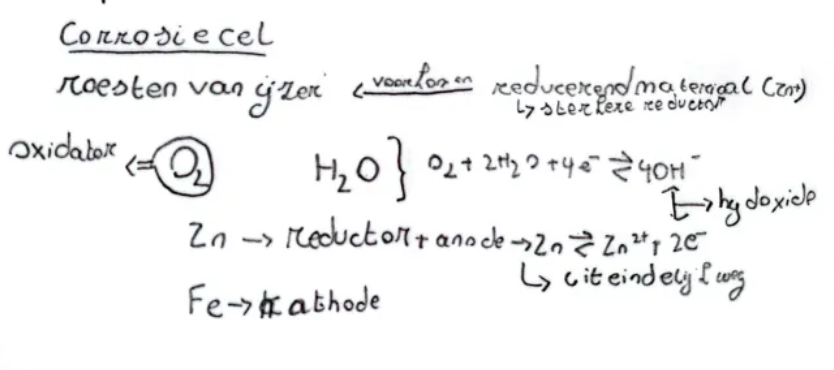 Corrosiecel
roesten van ijzer <— voorkomen reducerend materiaal (Zn)
↳ sterkere reductor
oxidator <= O₂ H₂O } O₂ + 2H₂O + 4e⁻ ⇄ 4OH⁻
↳ hydoxide
Zn → reductor + anode → Zn ⇄ Zn²⁺ + 2e⁻
↳ uiteindelijk weg
Fe → kathode